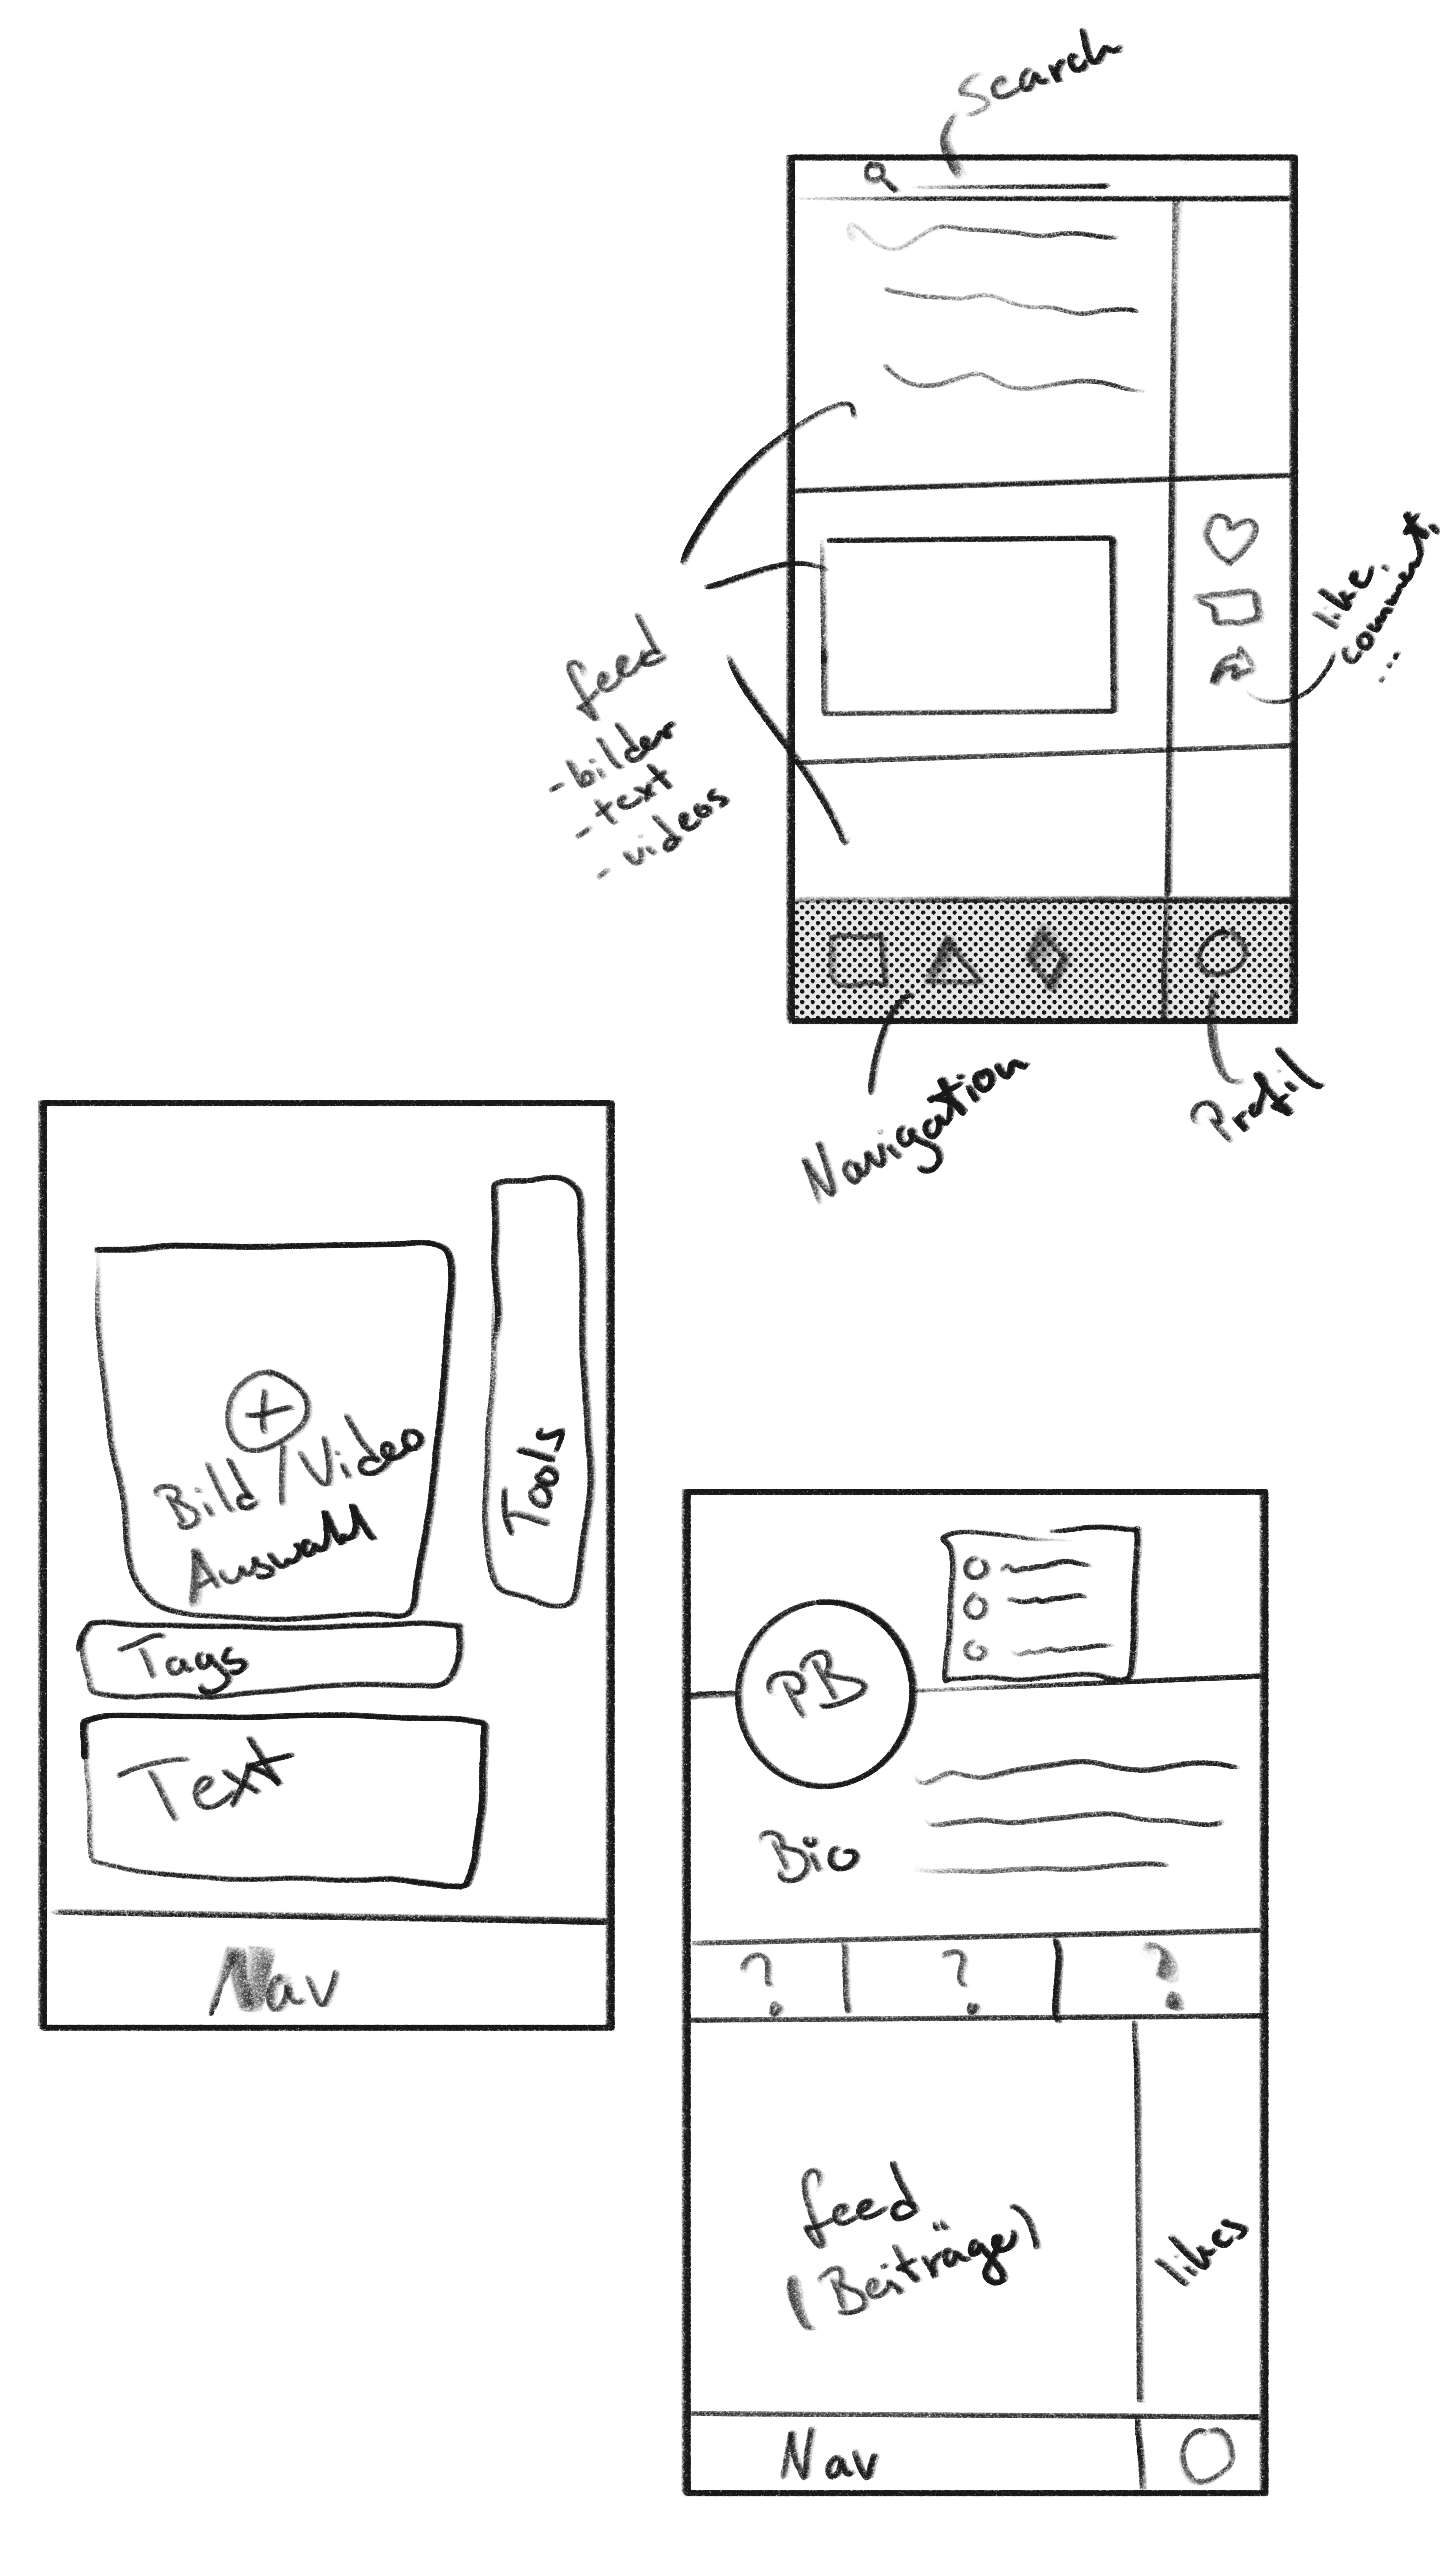 Search
like,
comment,
...
feed
- bilder
- text
- videos
Navigation
Profil
Bild/Video
Auswahl
Tools
Tags
Text
Nav
PB
Bio
? ? ?
feed
(Beiträge)
likes
Nav